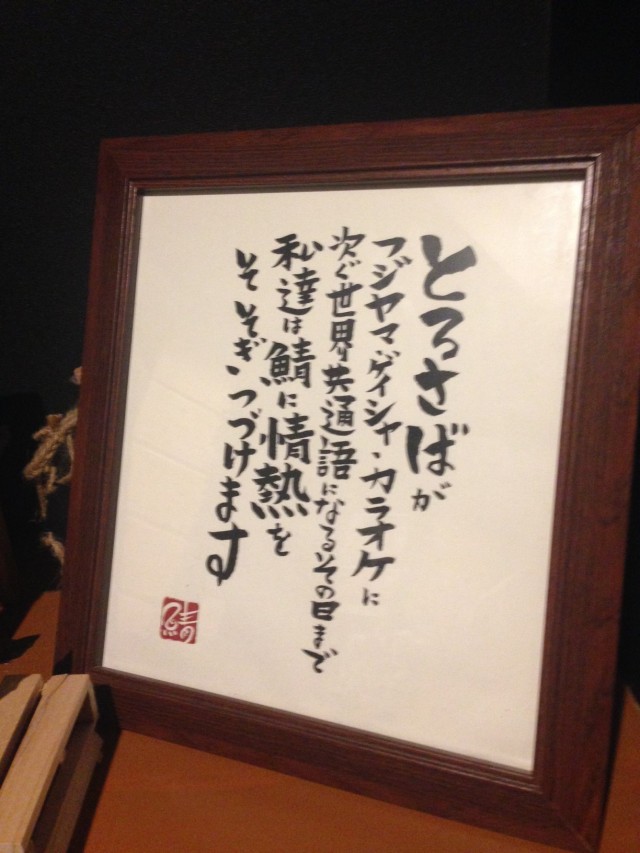 とろさばが
フジヤマ・ゲイシャ・カラオケに
次ぐ世界共通語になるその日まで
私達は鯖に情熱を
そそぎつづけます
鯖